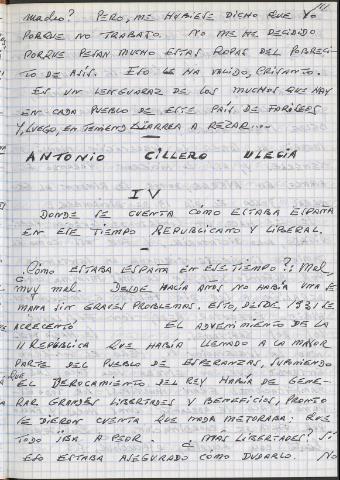 madre? PERO, ME HUBIESE DICHO QUE YO
PORQUE NO TRABAJO. NO ME HE DECIDIDO
PORQUE PESAN MUCHO ESTAS ROPAS DEL POBRECI-
TO DE ASIS. ESO LE HA VALIDO, CRISANTO.
ES UN LENGUARAZ DE LOS MUCHOS QUE HAY
EN CADA PUEBLO DE ESTE PAIS DE FARISEOS
Y, LUEGO, EN TENIENDO DIARREA A REZAR...
ANTONIO CILLERO ULECIA
IV
DONDE SE CUENTA CÓMO ESTABA ESPAÑA
EN ESE TIEMPO REPUBLICANO Y LIBERAL.
¿CÓMO ESTABA ESPAÑA EN ESE TIEMPO?: Mal,
muy mal. DESDE HACÍA AÑOS NO HABÍA UNA SE
MANA SIN GRAVES PROBLEMAS. ESTO, DESDE 1931 SE
ACRECENTÓ EL ADVENIMIENTO DE LA
II REPÚBLICA QUE HABÍA LLENADO A LA MAYOR
PARTE DEL PUEBLO DE ESPERANZAS, SUPONIENDO
QUE EL DERROCAMIENTO DEL REY HABÍA DE GENE-
RAR GRANDES LIBERTADES Y BENEFICIOS, PRONTO
SE DIERON CUENTA QUE NADA MEJORABA; QUE
TODO IBA A PEOR. ¿MÁS LIBERTADES? SÍ
ESO ESTABA ASEGURADO CÓMO DUDARLO. NO